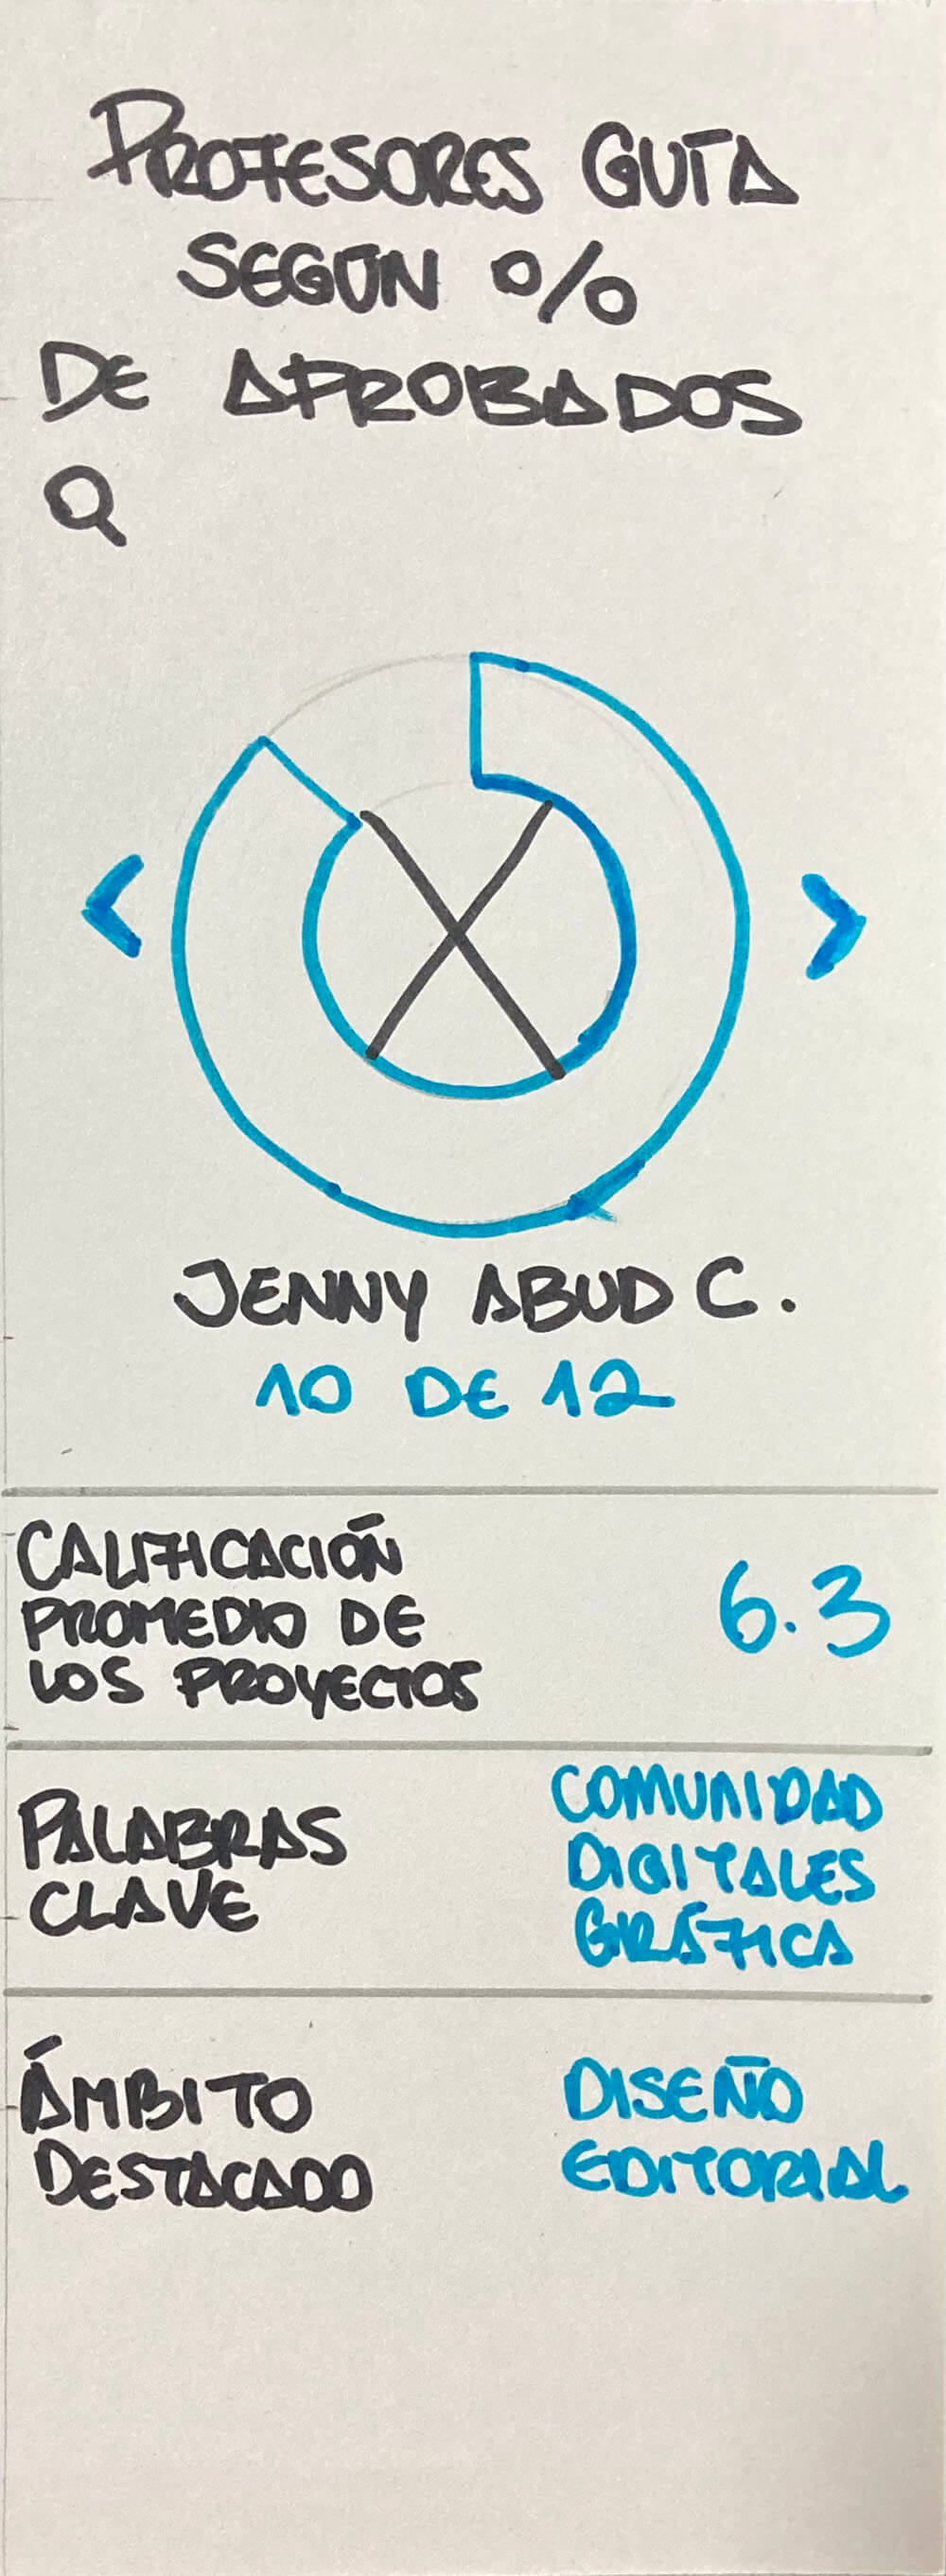 PROFESORES GUÍA
SEGÚN %
DE APROBADOS
JENNY ABUD C.
10 DE 12
CALIFICACIÓN
PROMEDIO DE
LOS PROYECTOS
6.3
PALABRAS
CLAVE
COMUNIDAD
DIGITALES
GRÁFICA
ÁMBITO
DESTACADO
DISEÑO
EDITORIAL